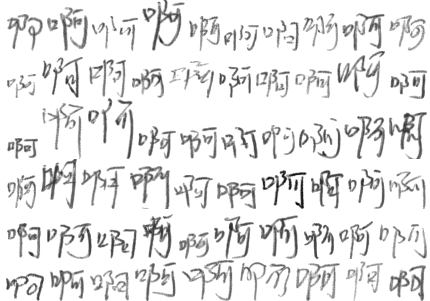 啊啊啊啊啊啊啊啊啊啊
啊啊啊啊啊啊啊啊啊啊
啊啊啊啊啊啊啊啊啊啊
啊啊啊啊啊啊啊啊啊啊
啊啊啊啊啊啊啊啊啊啊
啊啊啊啊啊啊啊啊啊